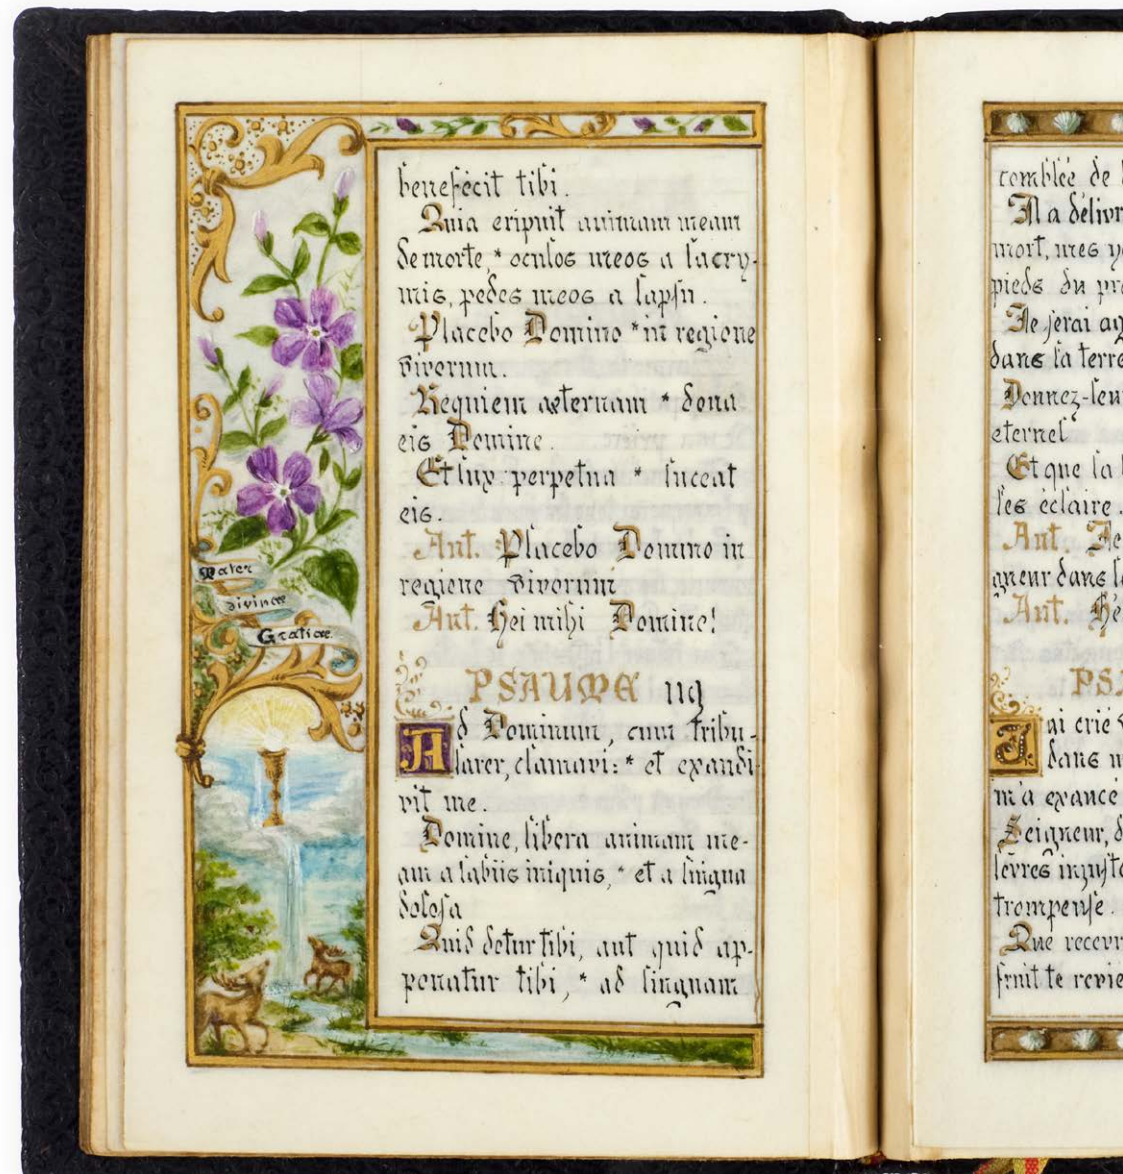 benefecit tibi.
Quia eripuit animam meam
de morte, * oculos meos a lacry-
mis, pedes meos a lapsu.
Placebo Domino * in regione
vivorum.
Requiem æternam * dona
eis Domine.
Et lux perpetua * luceat
eis.
Ant. Placebo Domino in
regione vivorum
Ant. Hei mihi Domine!
PSAUME 119
Ad Dominum, cum tribu-
larer, clamavi: * et exaudi-
vit me.
Domine, libera animam me-
am a labiis iniquis, * et a lingua
dolosa
Quid detur tibi, aut quid ap-
ponatur tibi, * ad linguam
Mater
divinæ
Gratiæ
comblée de
Il a délivr
mort, mes
pieds du
Je serai
dans la terre
Donnez-leur
eternel
Et que la
les éclaire.
Ant. Je
gneur dans
Ant.
PSA
J'ai crié
dans
m'a exaucé
Seigneur,
lèvres injuste
trompeuse.
Que
fruit te